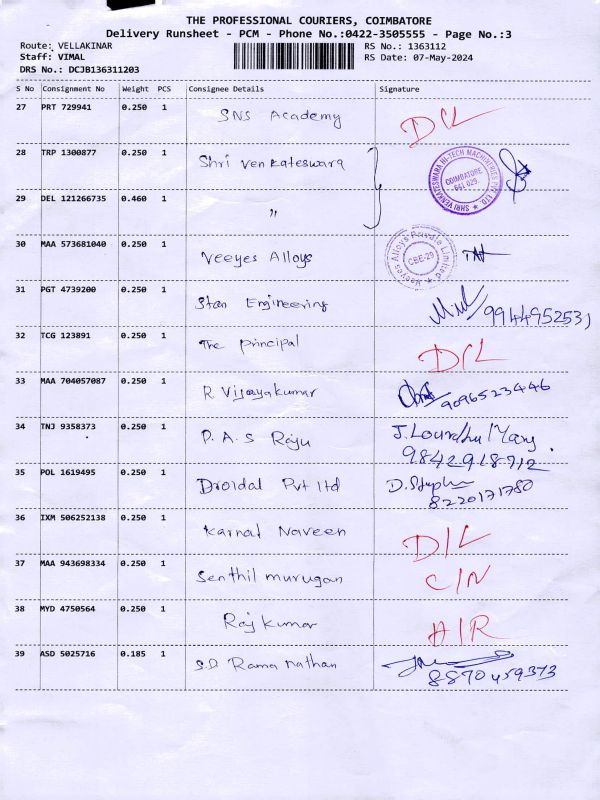 THE PROFESSIONAL COURIERS, COIMBATORE
Delivery Runsheet - PCM - Phone No.:0422-3505555 - Page No.:3
Route: VELLAKINAR
RS No.: 1363112
Staff: VIMAL
RS Date: 07-May-2024
DRS No.: DCJB136311203
S No Consignment No Weight PCS Consignee Details Signature
27 PRT 729941 0.250 1 SNS Academy D/L
28 TRP 1300877 0.250 1 Shri Venkateswara
SHRI VENKATESWARA HI-TECH MACHINERIES PVT LTD
COIMBATORE
641 029.
29 DEL 121266735 0.460 1 "
30 MAA 573681040 0.250 1 Veeyes Alloys
Veeyes Alloys Private Limited
CBE-29
31 PGT 4739200 0.250 1 Stan Engineering 9944952531
32 TCG 123891 0.250 1 The Principal D/L
33 MAA 704057087 0.250 1 R Vijayakumar 9096523446
34 TNJ 9358373 0.250 1 D.A.S Raju J. Lourdhu Mary
9842918712
35 POL 1619495 0.250 1 Droidal Pvt ltd D. Stephen
8220171780
36 IXM 506252138 0.250 1 Karnat Naveen D/L
37 MAA 943698334 0.250 1 Senthil murugan C/N
38 MYD 4750564 0.250 1 Raj kumar A/R
39 ASD 5025716 0.185 1 S.D Rama nathan
8870459373